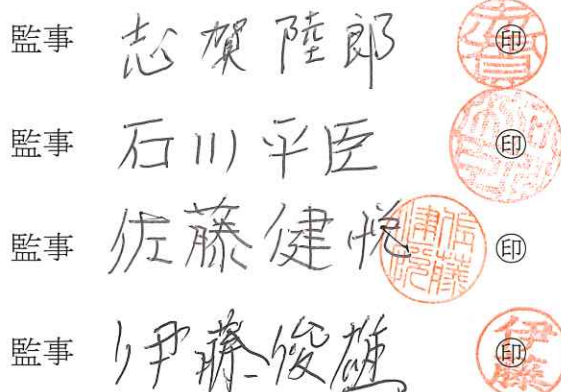 監事 志賀陸郎 ㊞
監事 石川平臣 ㊞
監事 佐藤健悦 佐藤健悦 ㊞
監事 伊藤俊雄 ㊞ 伊藤